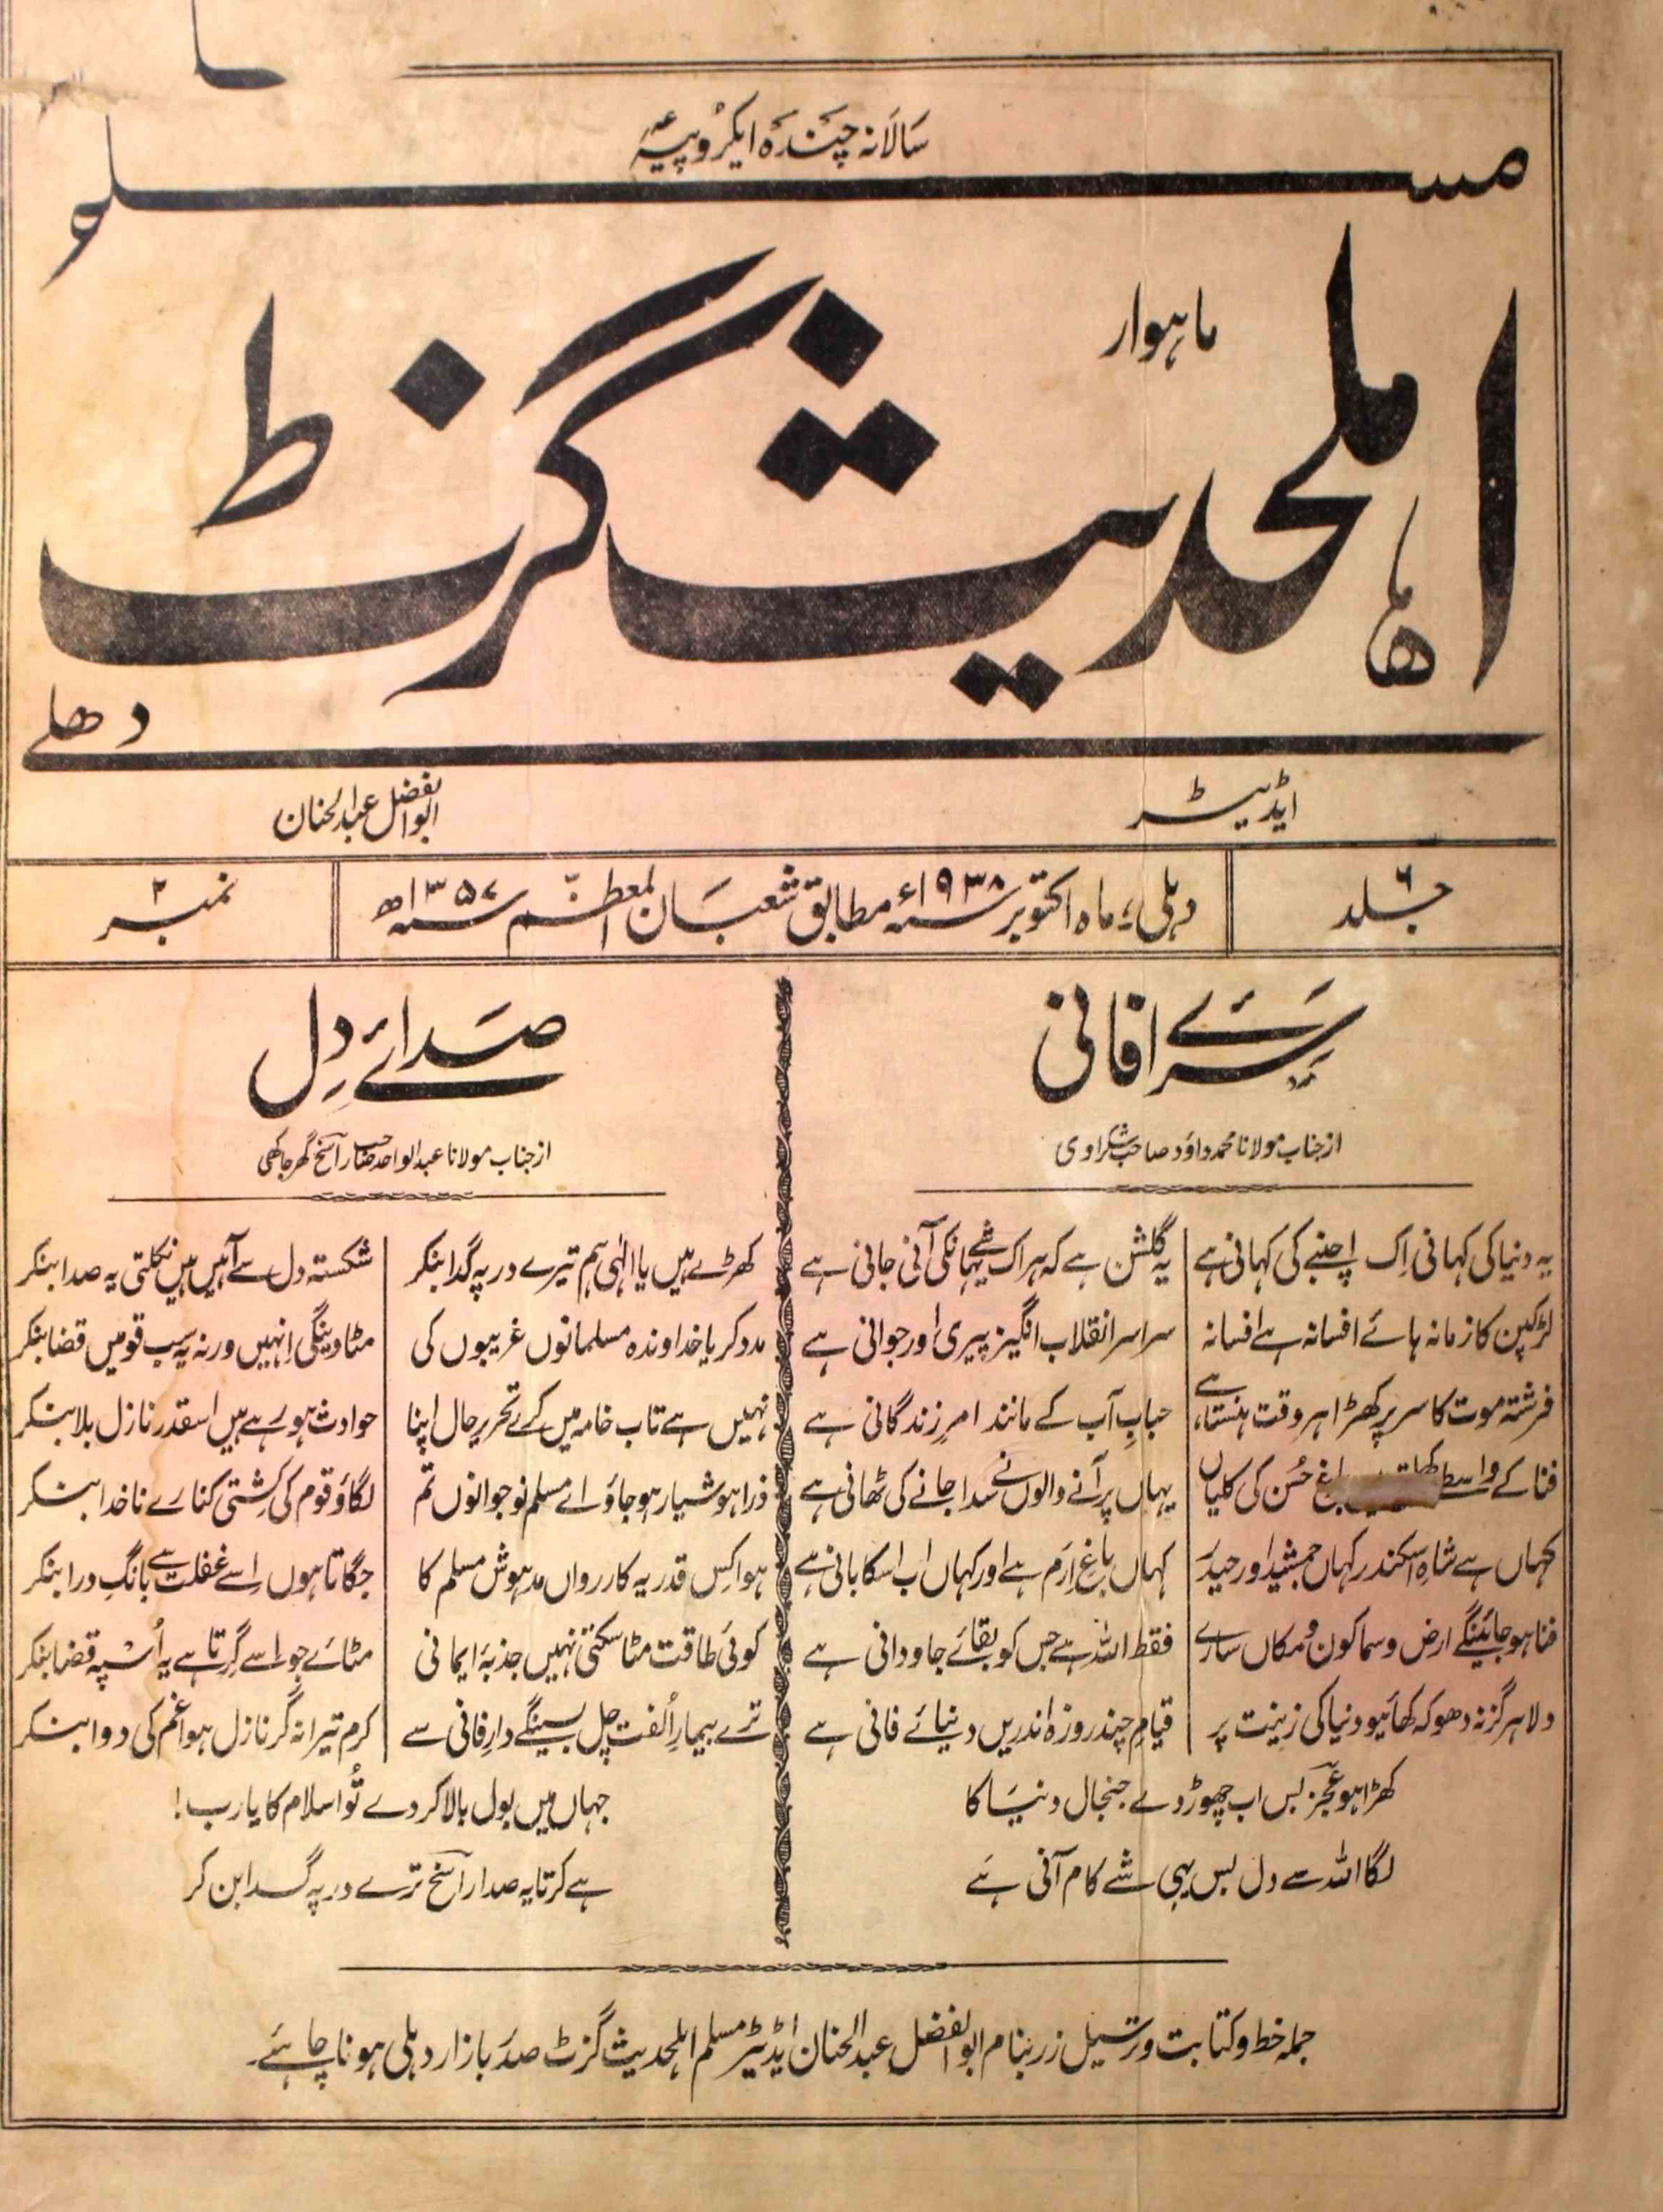 سالانہ چندہ ایکروپیہ
مسلم
ماہوار
اہلحدیث گزٹ
دھلی
ایڈیٹر
ابوالفضل عبدالحنان
جلد ۶
دہلی، ماہ اکتوبر سنہ ۱۹۳۸ء مطابق شعبان المعظم سنہ ۱۳۵۷ھ
نمبر ۲
سرائے فانی
از جناب مولانا محمد داؤد صاحب شکراوی
یہ دنیا کی کہانی اِک اچنبے کی کہانی ہے یہ گلشن ہے کہ ہر اک شے یہانکی آنی جانی ہے
لڑکپن کا زمانہ ہائے افسانہ ہے افسانہ سراسر انقلاب انگیز پیری اور جوانی ہے
فرشتہ موت کا سر پر کھڑا ہر وقت ہنستا ہے حبابِ آب کے مانند امرِ زندگانی ہے
فنا کے واسطے باغِ حُسن کی کلیاں یہاں پر آنے والوں نے سدا جانے کی ٹھانی ہے
کہاں ہے شاہِ اسکندر کہاں جمشید اور حیدر کہاں باغِ اِرَم ہے اور کہاں اب اسکا بانی ہے
فنا ہو جائینگے ارض و سما کون و مکاں سارے فقط اللہ ہے جس کو بقائے جاودانی ہے
دلا ہرگز نہ دھوکہ کھائیو دنیا کی زینت پر قیامِ چند روزہ اندریں دنیائے فانی ہے
کھڑا ہو عجز بس اب چھوڑ دے جنجال دنیا کا
لگا اللہ سے دل بس یہی شے کام آنی ہے
صدائے دِل
از جناب مولانا عبدالواحد صاحب راسخ گھرجاکھی
کھڑے ہیں یا الٰہی ہم تیرے در پہ گدا بنکر شکستہ دل سے آہیں ہیں نکلتی یہ صدا بنکر
مدد کر یا خداوندہ مسلمانوں غریبوں کی مٹادینگی اِنہیں ورنہ یہ سب قومیں قضا بنکر
نہیں ہے تاب خامہ میں کرے تحریر حال اپنا حوادث ہو رہے ہیں اسقدر نازل بلا بنکر
ذرا ہوشیار ہو جاؤ اے مسلم نوجوانوں تم لگاؤ قوم کی کشتی کنارے ناخدا بنکر
ہوا کِس قدر یہ کاررواں مدہوش مسلم کا جگاتا ہوں اِسے غفلت سے بانگِ درا بنکر
کوئی طاقت مٹا سکتی نہیں جذبۂ ایمانی مٹائے جو اسے گِرتا ہے یہ اُس پہ قضا بنکر
ترے بیمارِ اُلفت چل بسینگے دارِ فانی سے کرم تیرا نہ گر نازل ہوا غم کی دوا بنکر
جہاں میں بول بالا کر دے تُو اسلام کا یارب!
ہے کرتا یہ صدا راسخ ترے در پہ گدا بن کر
جملہ خط و کتابت و ترسیل زر بنام ابوالفضل عبدالحنان ایڈیٹر مسلم اہلحدیث گزٹ صدر بازار دہلی ہونا چاہئے۔